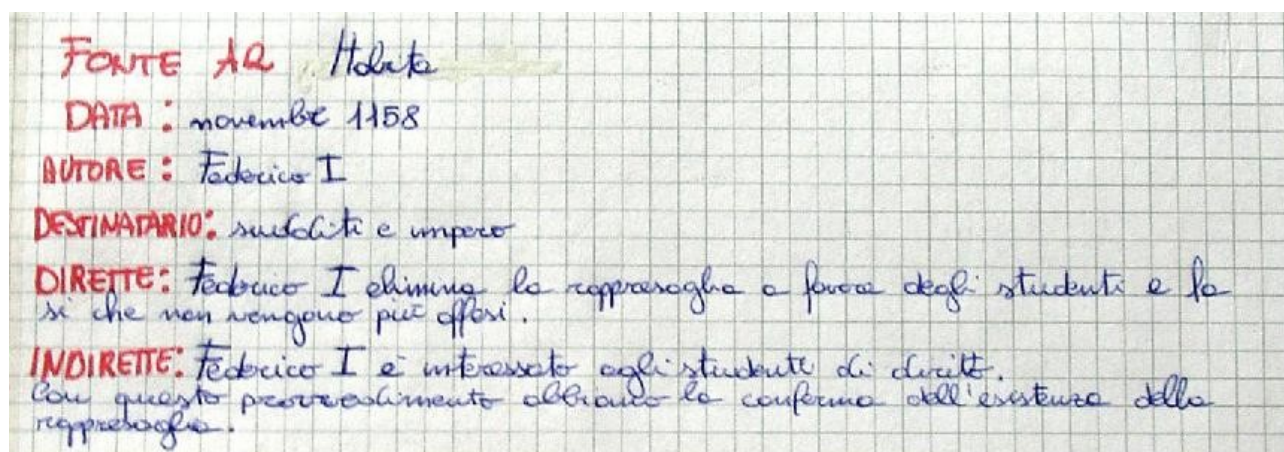 FONTE A2 Habita
DATA: novembre 1158
AUTORE: Federico I
DESTINATARIO: sudditi e impero
DIRETTE: Federico I elimina la rappresaglia a favore degli studenti e fa
sì che non vengono più offesi.
INDIRETTE: Federico I è interessato agli studenti di diritto.
Con questo provvedimento abbiamo la conferma dell'esistenza della
rappresaglia.